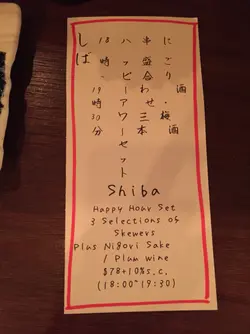 にごり酒・梅酒
串盛合わせ三本
ハッピーアワーセット
18時-19時30分
しば
Shiba
Happy Hour Set
3 Selections of
Skewers
Plus Nigori Sake
/ Plum wine
$78+10%s.c.
(18:00~19:30)